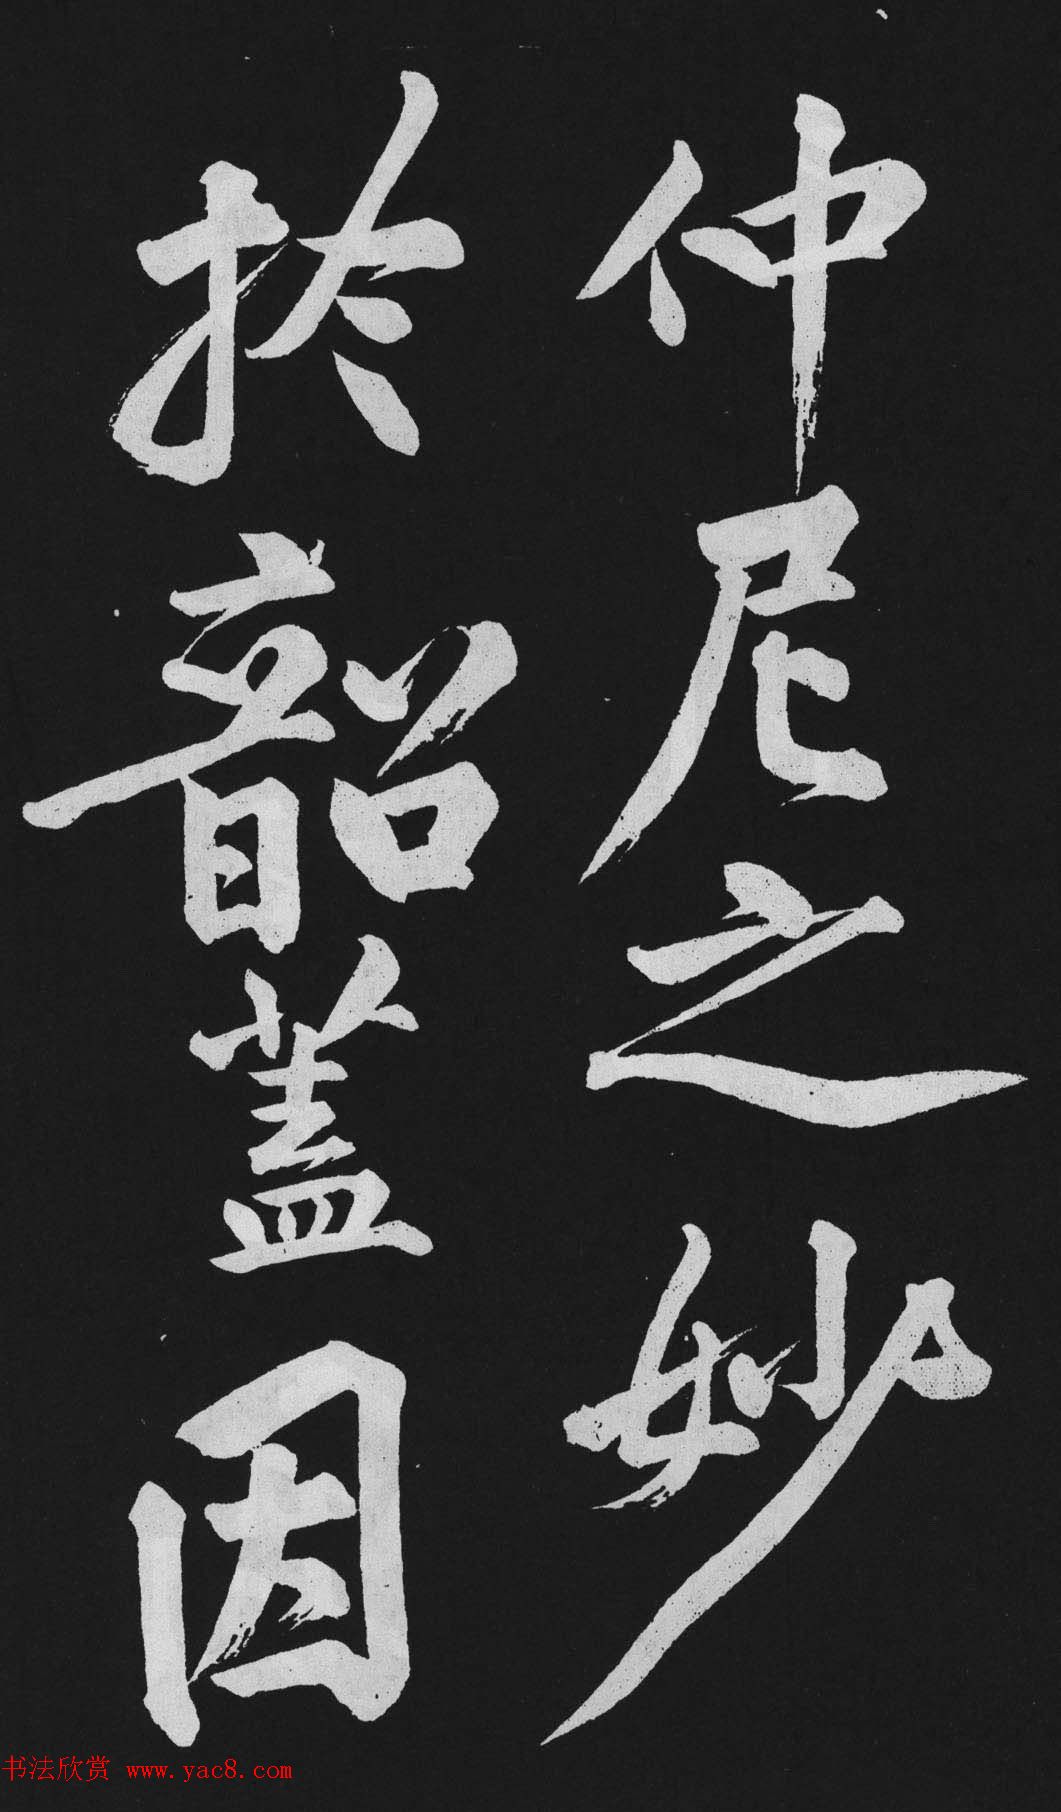 仲尼之妙
於韶蓋因
书法欣赏 www.yac8.com